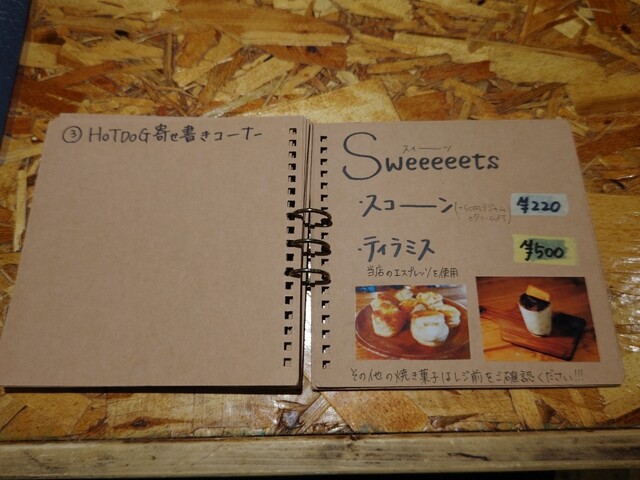 ③ HOTDOG寄せ書きコーナー
スイーツ
Sweeeeets
・スコーン ¥220
・ティラミス ¥500
当店のエスプレッソを使用
その他の焼き菓子はレジ前をご確認ください!!!